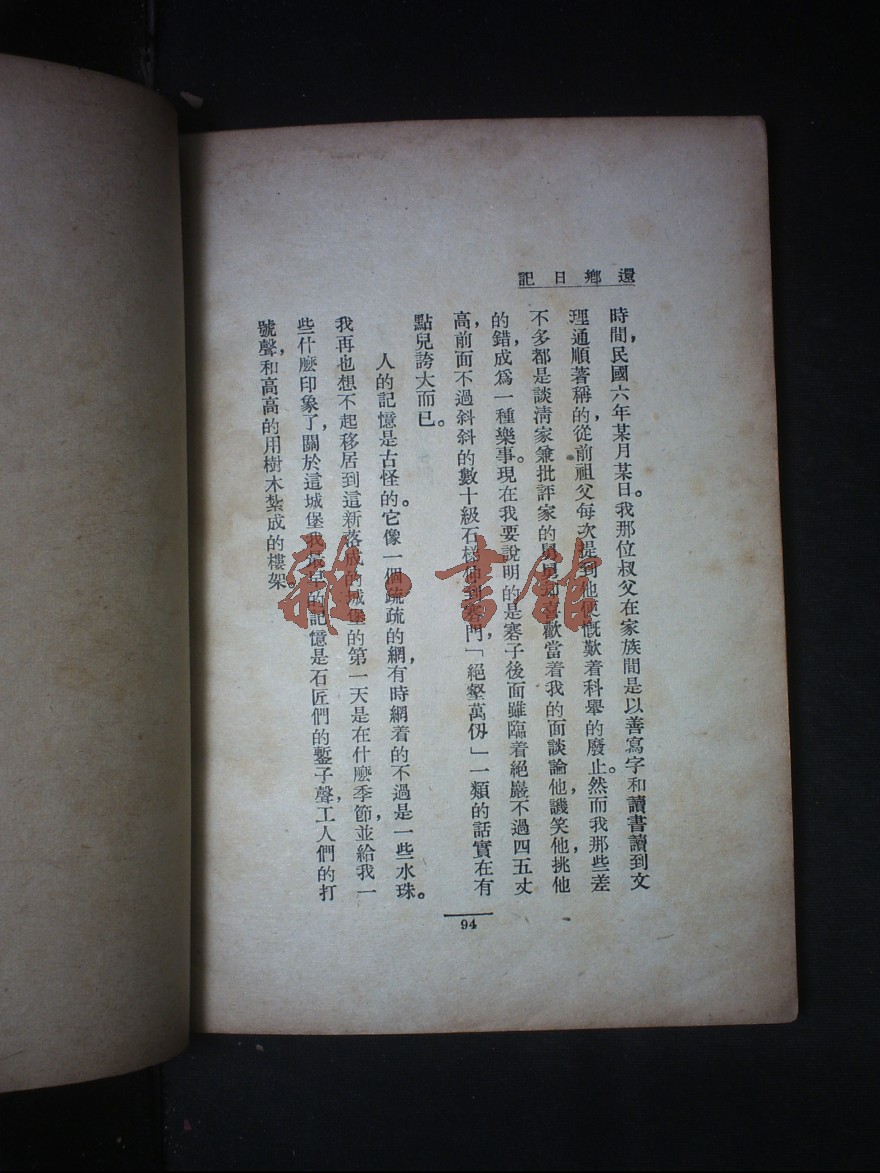 還鄉日記
時間，民國六年某月某日。我那位叔父在家族間是以善寫字和讀書讀到文
理通順著稱的，從前祖父每次提到他便慨歎着科舉的廢止。然而我那些差
不多都是談淸家兼批評家的舅舅却喜歡當着我的面談論他，譏笑他，挑他
的錯，成爲一種樂事。現在我要說明的是寨子後面雖臨着絕巖不過四五丈
高，前面不過斜斜的數十級石梯伸到寨門，「絕壑萬仭」一類的話實在有
點兒誇大而已。
人的記憶是古怪的。它像一個疏疏的網，有時網着的不過是一些水珠。
我再也想不起移居到這新落成的城堡的第一天是在什麼季節，並給我一
些什麼印象了，關於這城堡我最早的記憶是石匠們的鏨子聲，工人們的打
號聲，和高高的用樹木紮成的樓架。
94
雜·書館